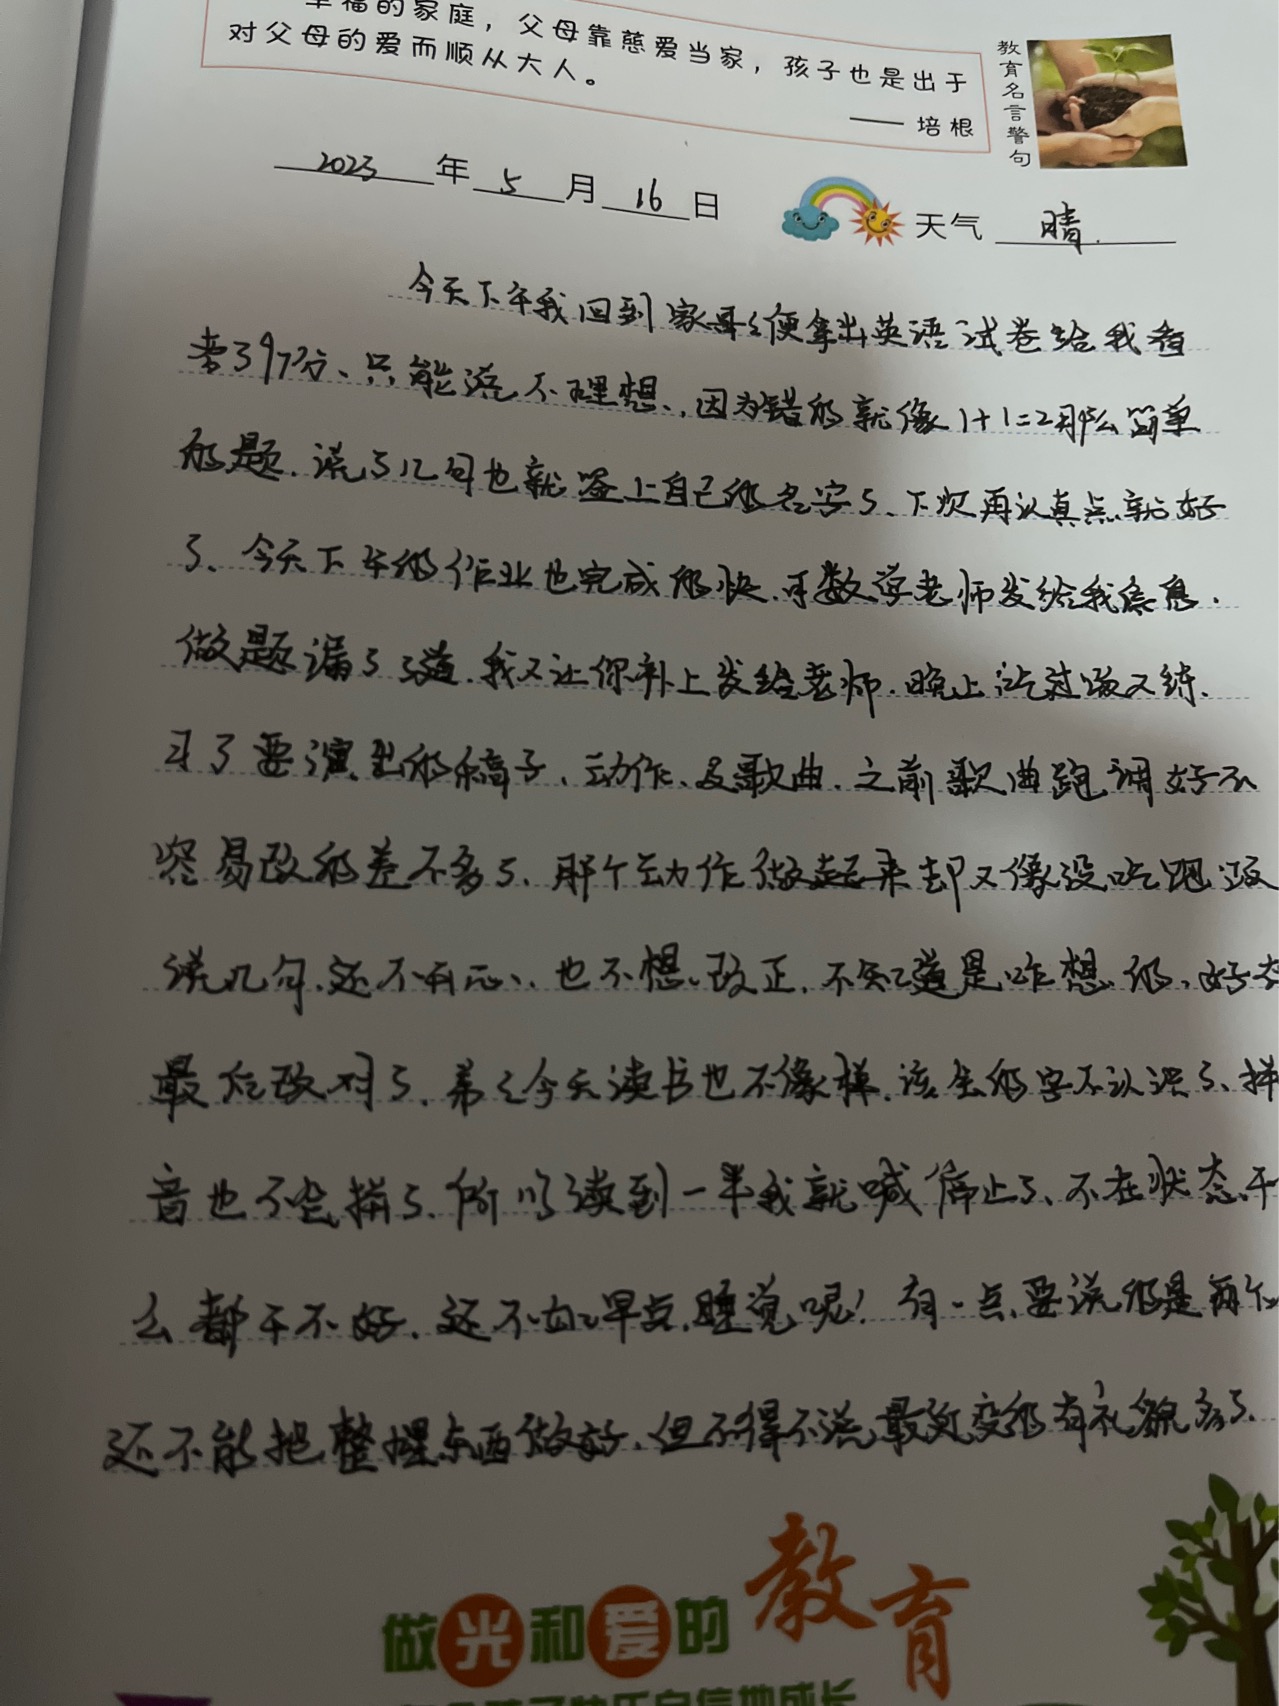 幸福的家庭，父母靠慈爱当家，孩子也是出于
对父母的爱而顺从大人。
—— 培根
教育名言警句
2023年5月16日
天气 晴.
今天下午我回到家哥哥便拿出英语试卷给我看
考了97分、只能说不理想、因为错的就像1+1=2那么简单
的题.说了几句也就签上自己的名字了、下次再认真点就好
了、今天下午的作业也完成的快.可数学老师发给我信息.
做题漏了3道.我又让你补上发给老师.晚上吃过饭又练.
习了要演出的稿子、动作、及歌曲.之前歌曲跑调好不
容易改的差不多了、那个动作做起来却又像没吃饱饭
说几句.还不开心、也不想改正.不知道是咋想的、好在
最后改对了.弟弟今天读书也不像样.该会的字不认识了、拼
音也不会拼了.所以读到一半我就喊停止了、不在状态.干
么都干不好.还不如早点睡觉呢！有一点要说的是两个
还不能把整理东西做好.但不得不说最近变的有礼貌多了.
做光和爱的教育